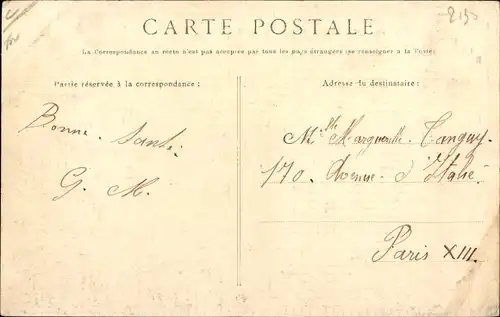 CARTE POSTALE
La Correspondance au recto n'est pas acceptée par tous les pays étrangers (se renseigner à la Poste)
Partie réservée à la correspondance :
Bonne Santé.
G. M.
Adresse du destinataire :
Marguerite Tanguy.
170. Avenue d'Italie.
Paris XIII.